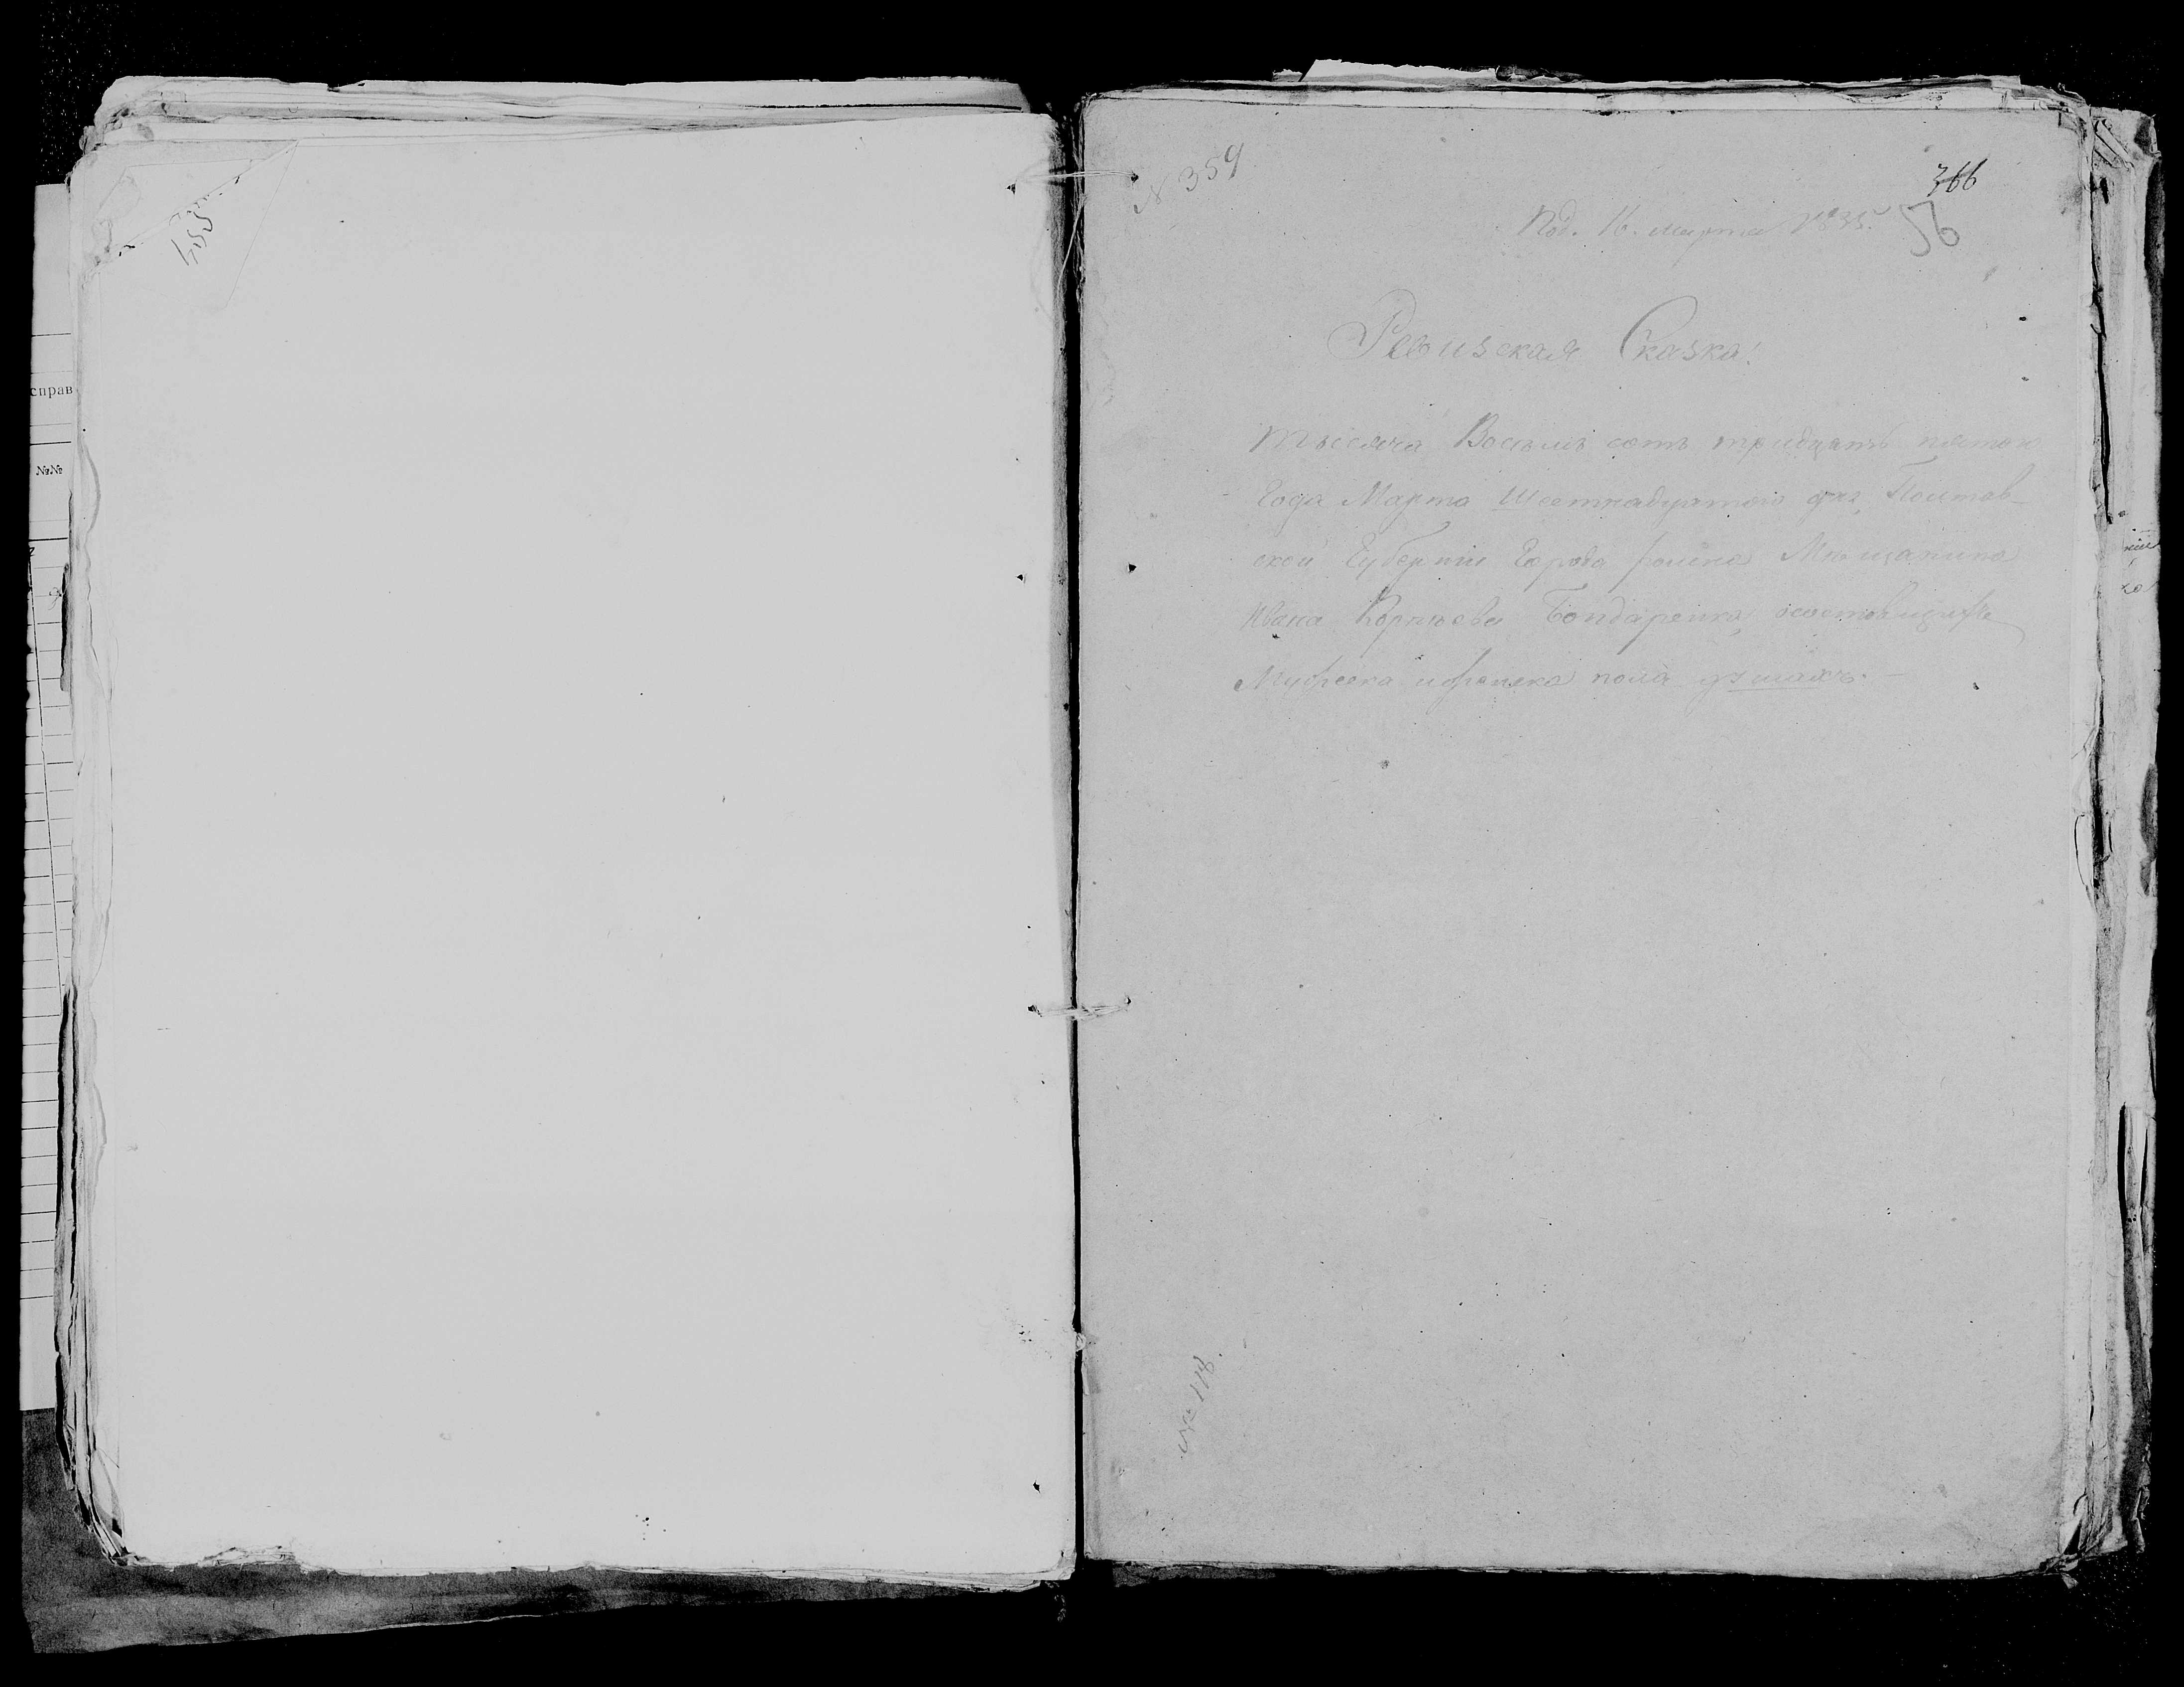 справ
№№
455
N 359
366
Под. 16. Марта 1835.
56
Ревизская Сказка!
Тысяча Восемь сотъ тридцать пятого
Года Марта Шестнадцатого дня, Полтав-
ской Губернии Города Мещанина
Ивана Корнѣева Бондаренка, осостоящихъ
Мужеска иженска пола душахъ.
№ 118.